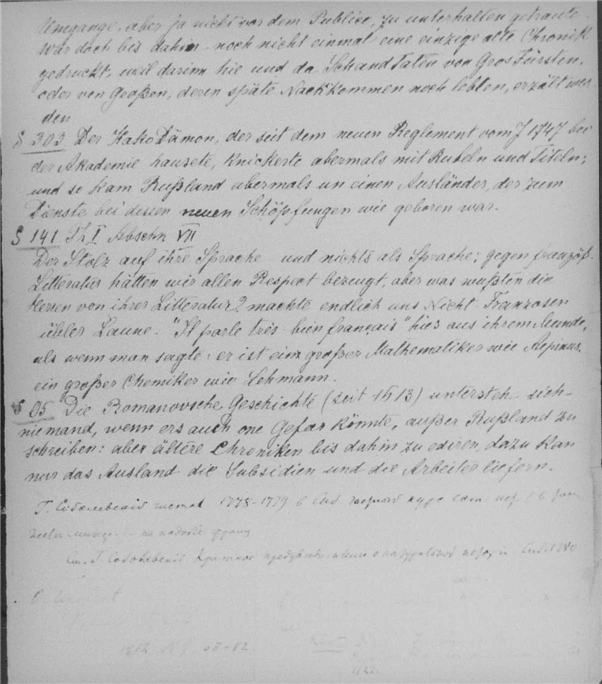 Umgange, aber ja nicht vor dem Publico, zu unterhalten getraute.
War doch bis dahin noch nicht einmal eine einzige alte Chronik
gedruckt, weil darinn hie und da Schandtaten von Gros Fürsten,
oder von Großen, deren späte Nachkommen noch lebten, erzält wer
den
§ 303 Der KakoDämon, der seit dem neuen Reglement vom J 1747 bei
der Akademie hausete, knickerte abermals mit Rubeln und Titeln;
und so kam Rußland abermals um einen Ausländer, der zum
Dienste bei diesen neuen Schöpfungen wie geboren war.
§ 141 Th I Abschn VII
Der Stolz auf ihre Sprache und nichts als Sprache; gegen französ.
Litteratur hätten wir allen Respect bezeugt, aber was wußten die
Herren von ihrer Litteratur? machte endlich uns Nicht Franzosen
übler Laune. "Il parle très bein français" hies aus ihrem Munde,
als wenn man sagte: er ist ein großer Mathematiker wie Aepinus,
ein großer Chemiker wie Lehmann.
§ 05 Die Romanovsche Geschichte (seit 1613) unterstehe sich
niemand, wenn ers auch one Gefar könnte, außer Rußland zu
schreiben: aber ältere Chroniken bis dahin zu ediren, dazu kan
nur das Ausland die Subsidien und die Arbeiter liefern.
Г. Соболевский 1778-1779 в
на
См. Г. Соболевский о натуральной